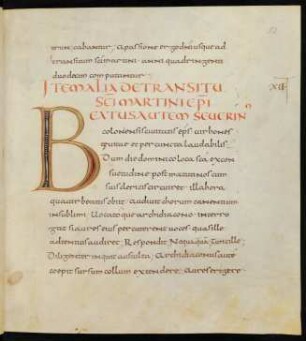 trinicabantur; a passione ergo dni usque ad
transitum sci martini anni quadringenti
duodecim computantur.
ITEM ALIA DE TRANSITU
SCI MARTINI EPI XII
BEATUS AUTEM SEVERIN
colonensis civitatis eps vir hones
te vitae et per cuncta laudabilis
Dum die dominico loca sca ex con
suetudine post matutinos cum
suis clericis circuiret illa hora
qua vir beatus obiit audivit chorum canentium
in sublimi. Vocatoque archidiacono interro
gat si aures eius percuterent voces quas ille
adtentus audiret; Respondit Nequaquam Tunc ille;
Diligentius inquit ausculta; Archidiaconus autem
coepit sursum collum extendere; aures erigere